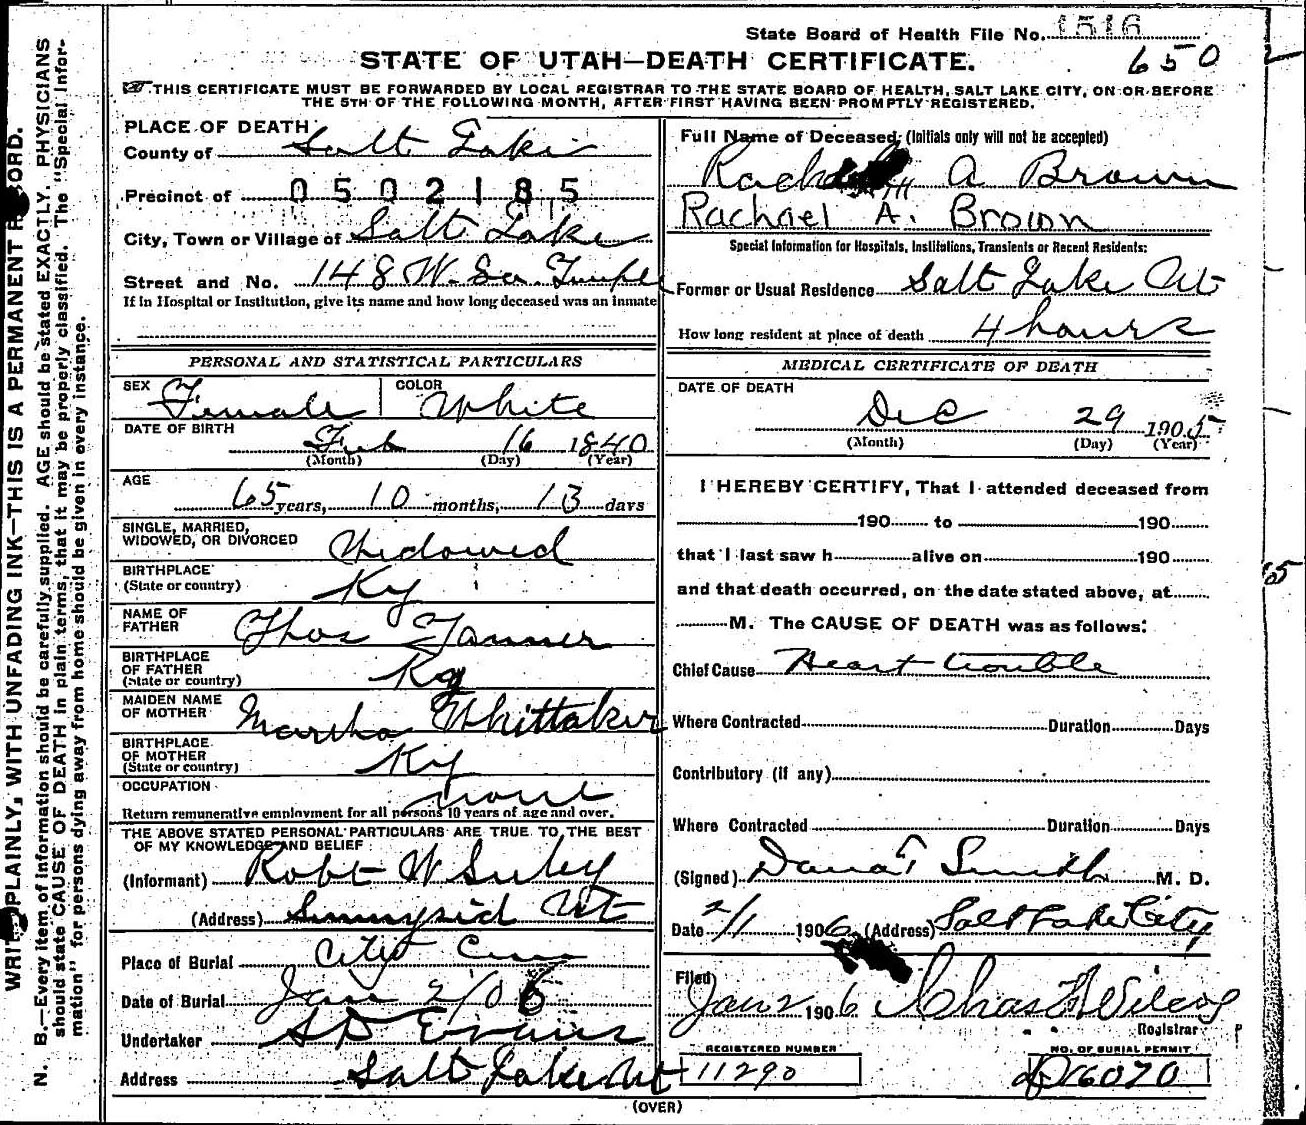 State Board of Health File No. 1516
650
STATE OF UTAH—DEATH CERTIFICATE.
THIS CERTIFICATE MUST BE FORWARDED BY LOCAL REGISTRAR TO THE STATE BOARD OF HEALTH, SALT LAKE CITY, ON OR BEFORE
THE 5TH OF THE FOLLOWING MONTH, AFTER FIRST HAVING BEEN PROMPTLY REGISTERED.
PLACE OF DEATH
County of Salt Lake
Precinct of 0502185
City, Town or Village of Salt Lake
Street and No. 148 W. So. Temple
If in Hospital or Institution, give its name and how long deceased was an inmate
PERSONAL AND STATISTICAL PARTICULARS
SEX Female COLOR White
DATE OF BIRTH Feb 16 1840
(Month) (Day) (Year)
AGE 65 years, 10 months, 13 days
SINGLE, MARRIED,
WIDOWED, OR DIVORCED Widowed
BIRTHPLACE
(State or country) Ky
NAME OF
FATHER Thos Tanner
BIRTHPLACE
OF FATHER
(State or country) Ky
MAIDEN NAME
OF MOTHER Martha Whittaker
BIRTHPLACE
OF MOTHER
(State or country) Ky
OCCUPATION none
Return remunerative employment for all persons 10 years of age and over.
THE ABOVE STATED PERSONAL PARTICULARS ARE TRUE TO THE BEST
OF MY KNOWLEDGE AND BELIEF
(Informant) Robt W
(Address) Sunnysid Ut
Place of Burial City Cem
Date of Burial Jan 2/06
Undertaker S D Evans
Address Salt Lake Ut
Full Name of Deceased: (Initials only will not be accepted)
A Brown
Rachael A. Brown
Special Information for Hospitals, Institutions, Transients or Recent Residents:
Former or Usual Residence Salt Lake Ut
How long resident at place of death 4 hours
MEDICAL CERTIFICATE OF DEATH
DATE OF DEATH
Dec 29 1905
(Month) (Day) (Year)
I HEREBY CERTIFY, That I attended deceased from
190 to 190
that I last saw h alive on 190
and that death occurred, on the date stated above, at
M. The CAUSE OF DEATH was as follows:
Chief Cause Heart trouble
Where Contracted Duration Days
Contributory (if any)
Where Contracted Duration Days
(Signed) Dana T Smith M. D.
Date 2/1 1906 (Address) Salt Lake City
Filed
Jan 2 1906 Chas Wilcox
Registrar
REGISTERED NUMBER
11290
NO. OF BURIAL PERMIT
16070
(OVER)
WRITE PLAINLY, WITH UNFADING INK—THIS IS A PERMANENT RECORD.
N. B.—Every item of information should be carefully supplied. AGE should be stated EXACTLY. PHYSICIANS
should state CAUSE OF DEATH in plain terms, that it may be properly classified. The "Special Infor-
mation" for persons dying away from home should be given in every instance.